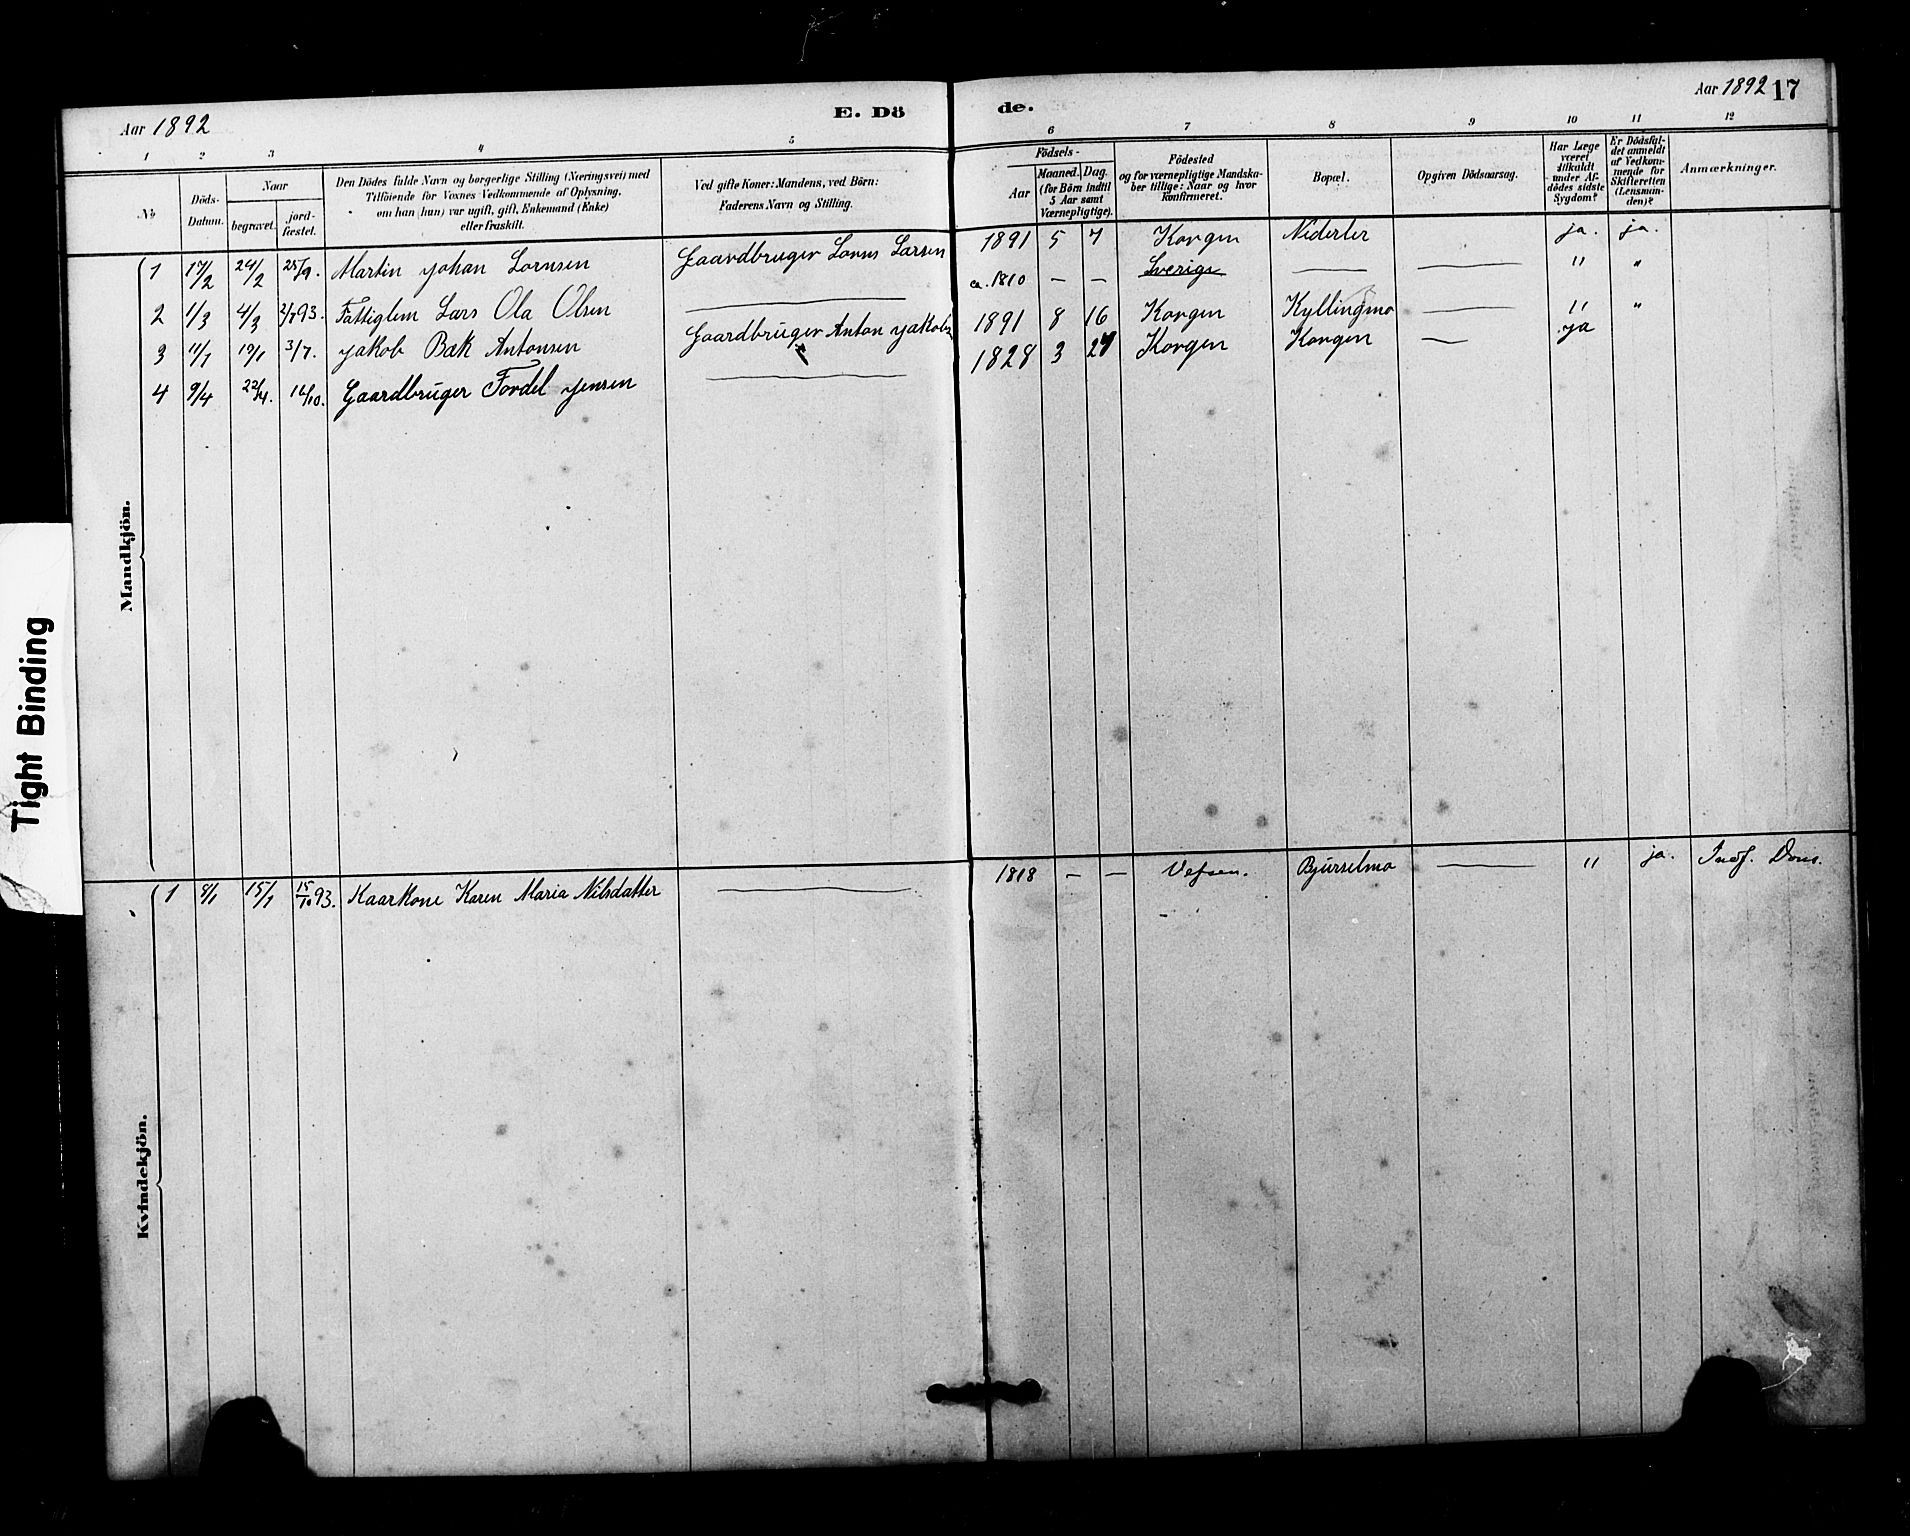 Aar 1892
E. Dö
de.
Aar 1892 17
1 2 3 4 5 6 7 8 9 10 11 12
No
Döds-
Datum.
Naar
begravet.
jord-
fæstet.
Den Dödes fulde Navn og borgerlige Stilling (Næringsvei) med
Tilföiende for Voxnes Vedkommende af Oplysning,
om han (hun) var ugift, gift, Enkemand (Enke)
eller fraskilt.
Ved gifte Koner: Mandens, ved Börn:
Faderens Navn og Stilling.
Födsels-
Aar
Maaned. Dag.
(for Börn indtil
5 Aar samt
Værnepligtige).
Födested
og for værnepligtige Mandska-
ber tillige: Naar og hvor
konfirmeret.
Bopæl.
Opgiven Dödsaarsag.
Har Læge
været
tilkaldt
under Af-
dödes sidste
Sygdom?
Er Dödsfal-
det anmeldt
af Vedkom-
mende for
Skifteretten
(Lensman-
den)?
Anmærkninger.
Mandkjön.
1 17/2 24/2 25/9. Martin Johan Lornsen Gaardbruger Lorns Larsen 1891 5 7 Korgen Nederler ja. ja.
2 1/3 4/3 2/7 93. Fattiglem Lars Ola Olsen — ca. 1810 — — Sverige — — " "
3 11/1 19/1 3/7. Jakob Bæk Antonsen Gaardbruger Anton Jakobs 1891 8 16 Korgen Kyllingmo — " "
4 9/4 22/4. 16/10. Gaardbruger Fordel Jensen — 1828 3 27 Korgen Korgen — ja
Kvindekjön.
1 8/1 15/1 15/10 93. Kaarkone Karen Maria Nilsdatter — 1818 — — Vefsen. Bjurselmo — " ja. Indf. Dons.
Tight Binding